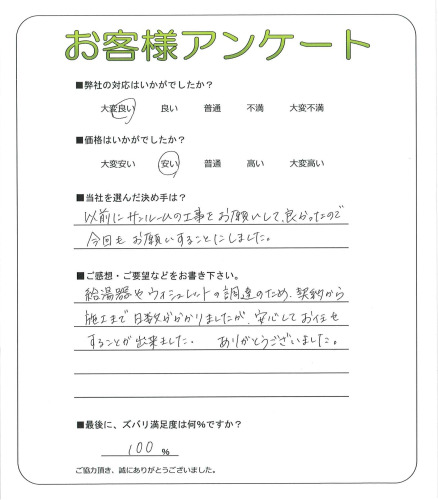 お客様アンケート
■弊社の対応はいかがでしたか？
大変良い 良い 普通 不満 大変不満
■価格はいかがでしたか？
大変安い 安い 普通 高い 大変高い
■当社を選んだ決め手は？
以前にサンルームの工事をお願いして、良かったので
今回もお願いすることにしました。
■ご感想・ご要望などをお書き下さい。
給湯器やウォシュレットの調達のため、契約から
施工まで日数がかかりましたが、安心してお任せ
することが出来ました。 ありがとうございました。
■最後に、ズバリ満足度は何％ですか？
100 ％
ご協力頂き、誠にありがとうございました。